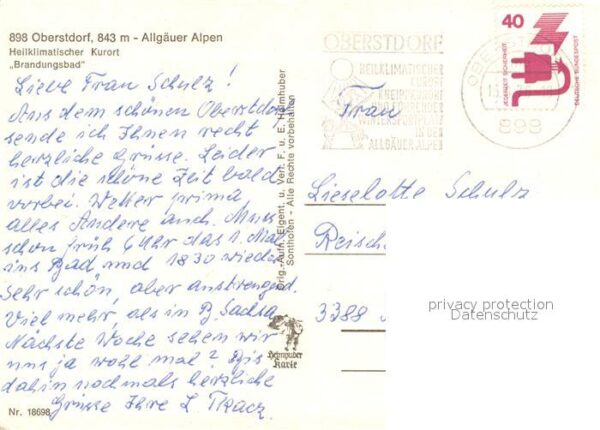 898 Oberstdorf, 843 m - Allgäuer Alpen
Heilklimatischer Kurort
„Brandungsbad"
Liebe Frau Schulz!
Aus dem schönen Oberstdorf
sende ich Ihnen recht
herzliche Grüsse. Leider
ist die schöne Zeit bald
vorbei. Wetter prima,
alles Andere auch. Muss
schon früh 6 Uhr das 1. Mal
ins Bad und 1830 wieder.
Sehr schön, aber anstrengend.
Viel mehr, als in B. Sachsa.
Nächste Woche sehen wir
uns ja wohl mal? Bis
dahin nochmals herzliche
Grüsse Ihre L. Tkacz
Nr. 18698
Orig.-Aufn. Eigent. u. Verl. F. u. E. Heimhuber
Sonthofen - Alle Rechte vorbehalten
Heimhuber
Karte
OBERSTDORF
HEILKLIMATISCHER
KURORT
KNEIPPKURORT
WINTERSPORTPLATZ
IN DEN
ALLGÄUER ALPEN
40
JEDERZEIT SICHERHEIT
DEUTSCHE BUNDESPOST
898
Frau
Lieselotte Schulz
Reisch
3388
privacy protection
Datenschutz